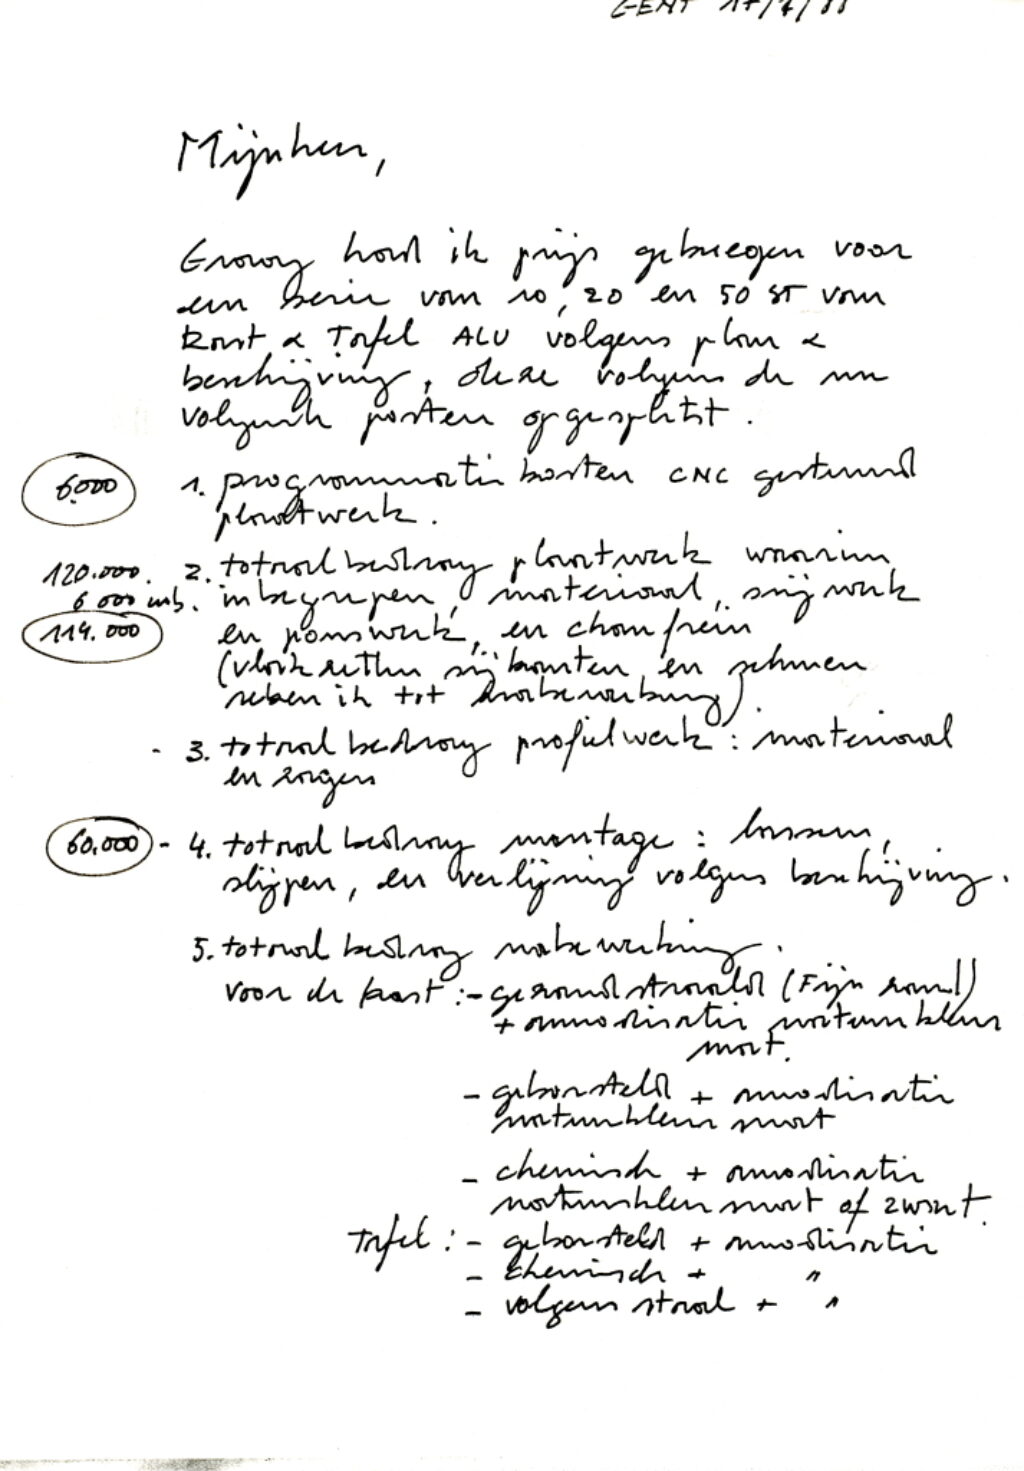 GENT 17/7/88
Mijnheer,
Graag had ik prijs gekregen voor
een serie van 10, 20 en 50 ST van
kast & Tafel ALU volgens plan &
beschrijving, deze volgens de na
volgende posten opgesplitst.
6.000 1. programmatie kosten CNC gestuurd
plaatwerk.
120.000. 2. totaal bedrag plaatwerk waarin
6 000 inb. inbegrepen, materiaal, snijwerk
114.000 en ponswerk, en chanfrein
(vlak zetten snijkanten en schuren
reken ik tot nabewerking).
- 3. totaal bedrag profielwerk : materiaal
en zagen
60.000 - 4. totaal bedrag montage : lassen,
slijpen, en verlijming volgens beschrijving.
5. totaal bedrag nabewerking.
voor de kast : - gezandstraald (Fijn zand)
+ annodisatie natuurkleur
mat.
- geborsteld + annodisatie
natuurkleur mat
- chemisch + annodisatie
natuurkleur mat of zwart.
Tafel : - geborsteld + annodisatie
- chemisch + "
- volgens staal + "